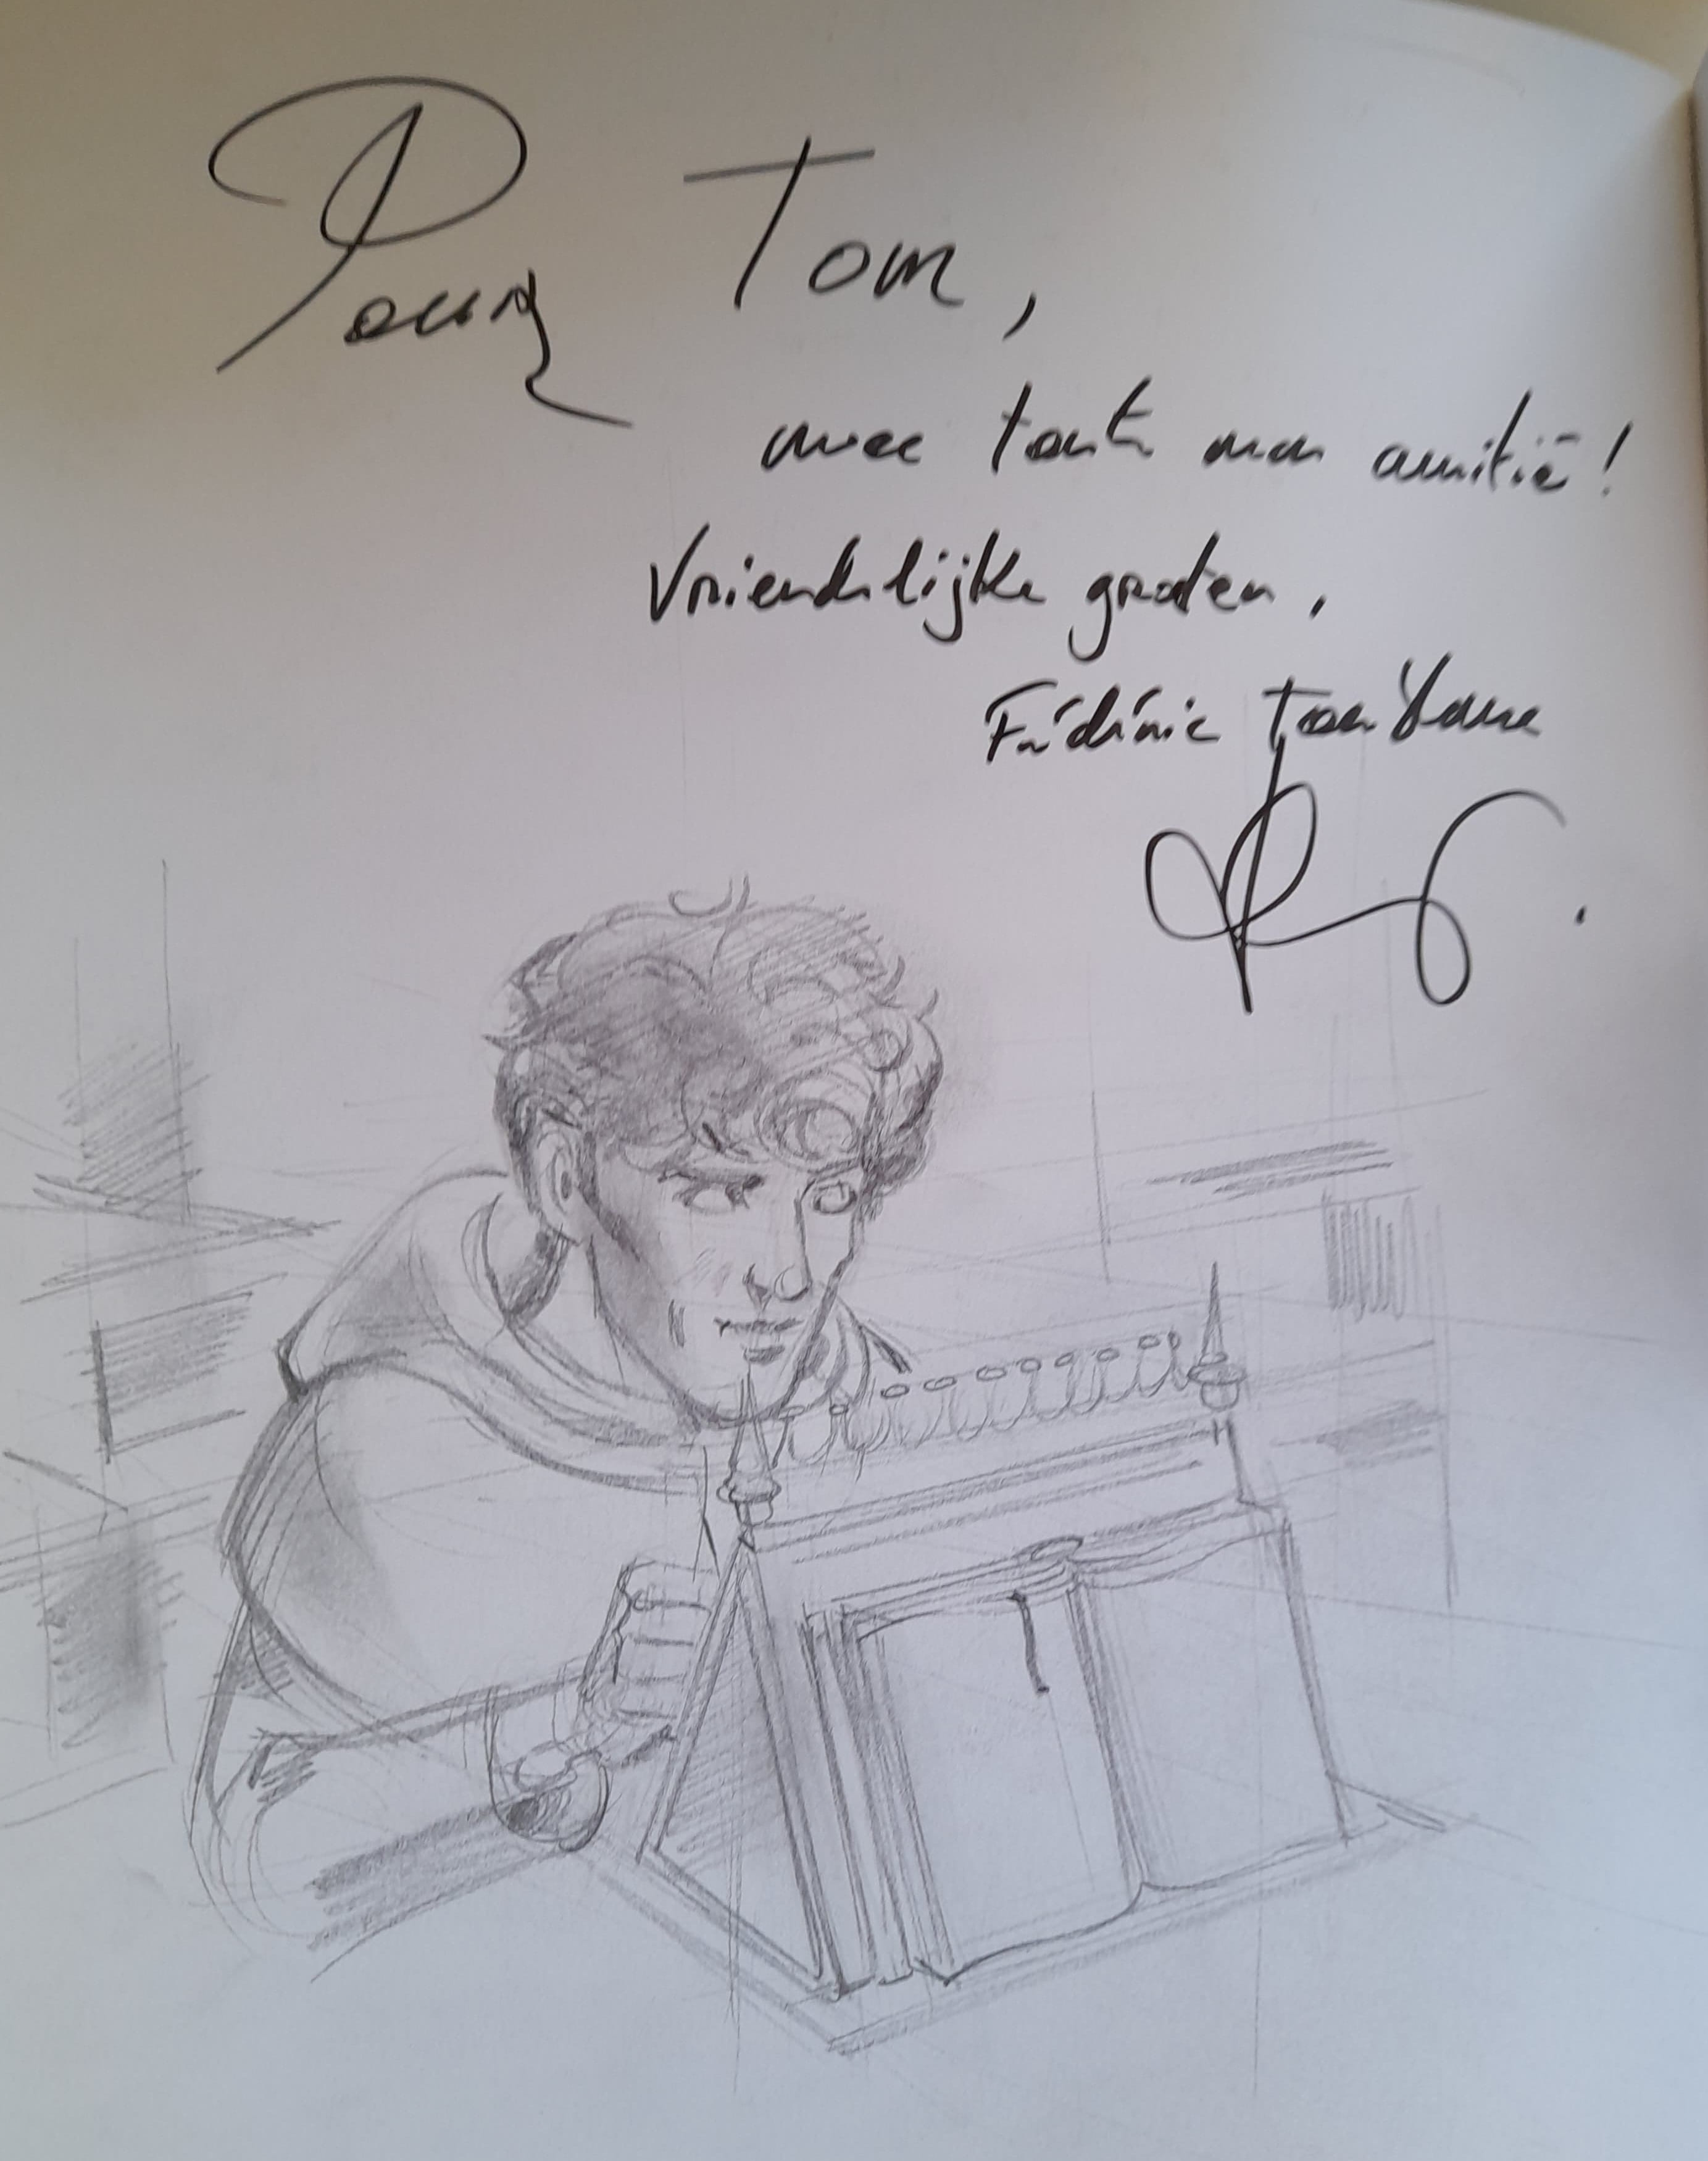 Pour Tom,
avec toute mon amitié!
Vriendelijke groeten,
Frédéric